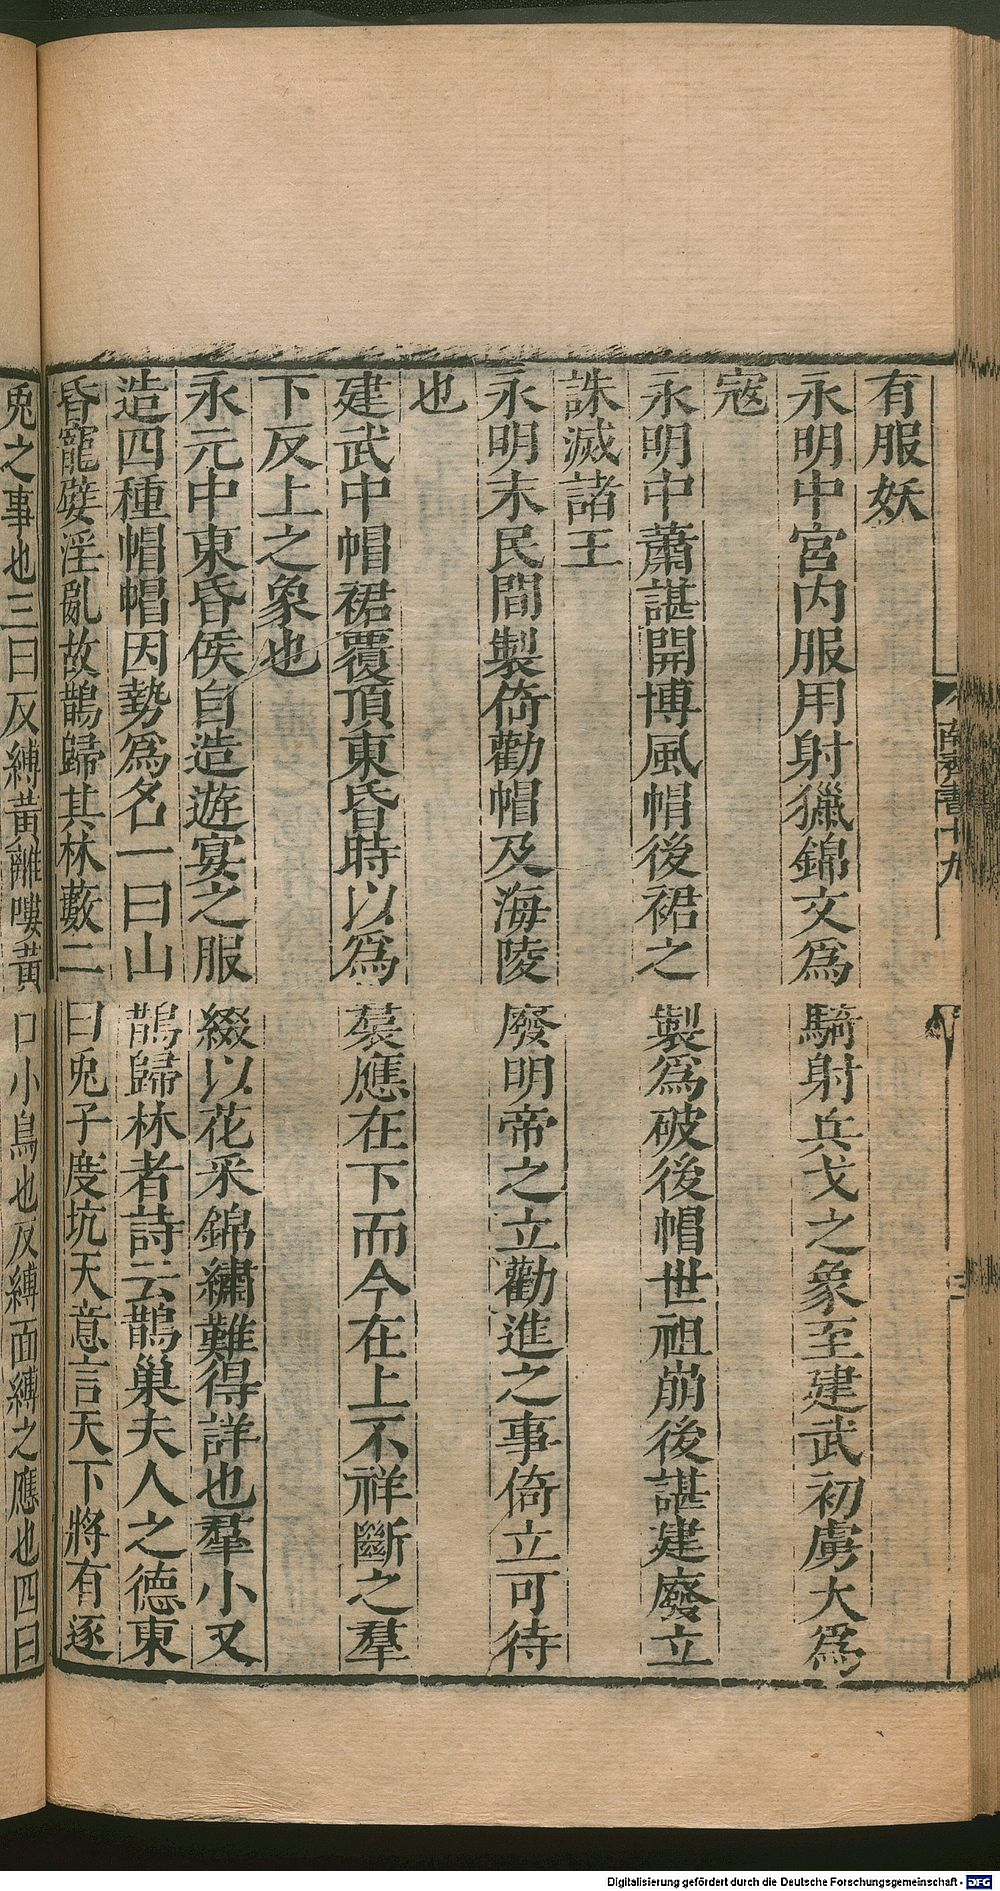 有服妖
永明中宮内服用射獵錦文爲騎射兵戈之象至建武初虜大爲
寇
永明中蕭諶開博風帽後裙之製爲破後帽世祖崩後諶建廢立
誅滅諸王
永明末民間製倚勸帽及海陵廢明帝之立勸進之事倚立可待
也
建武中帽裙覆頂東昏時以爲裠應在下而今在上不祥斷之羣
下反上之象也
永元中東昏侯自造遊宴之服綴以花釆錦繡難得詳也羣小又
造四種帽帽因勢爲名一曰山鵲歸林者詩云鵲巢夫人之德東
昏寵嬖淫亂故鵲歸其林藪二曰兎子度坑天意言天下將有逐
兎之事也三曰反縛黃離嘍黃口小鳥也反縛面縛之應也四曰
南齊書十九
Digitalisierung gefördert durch die Deutsche Forschungsgemeinschaft - DFG